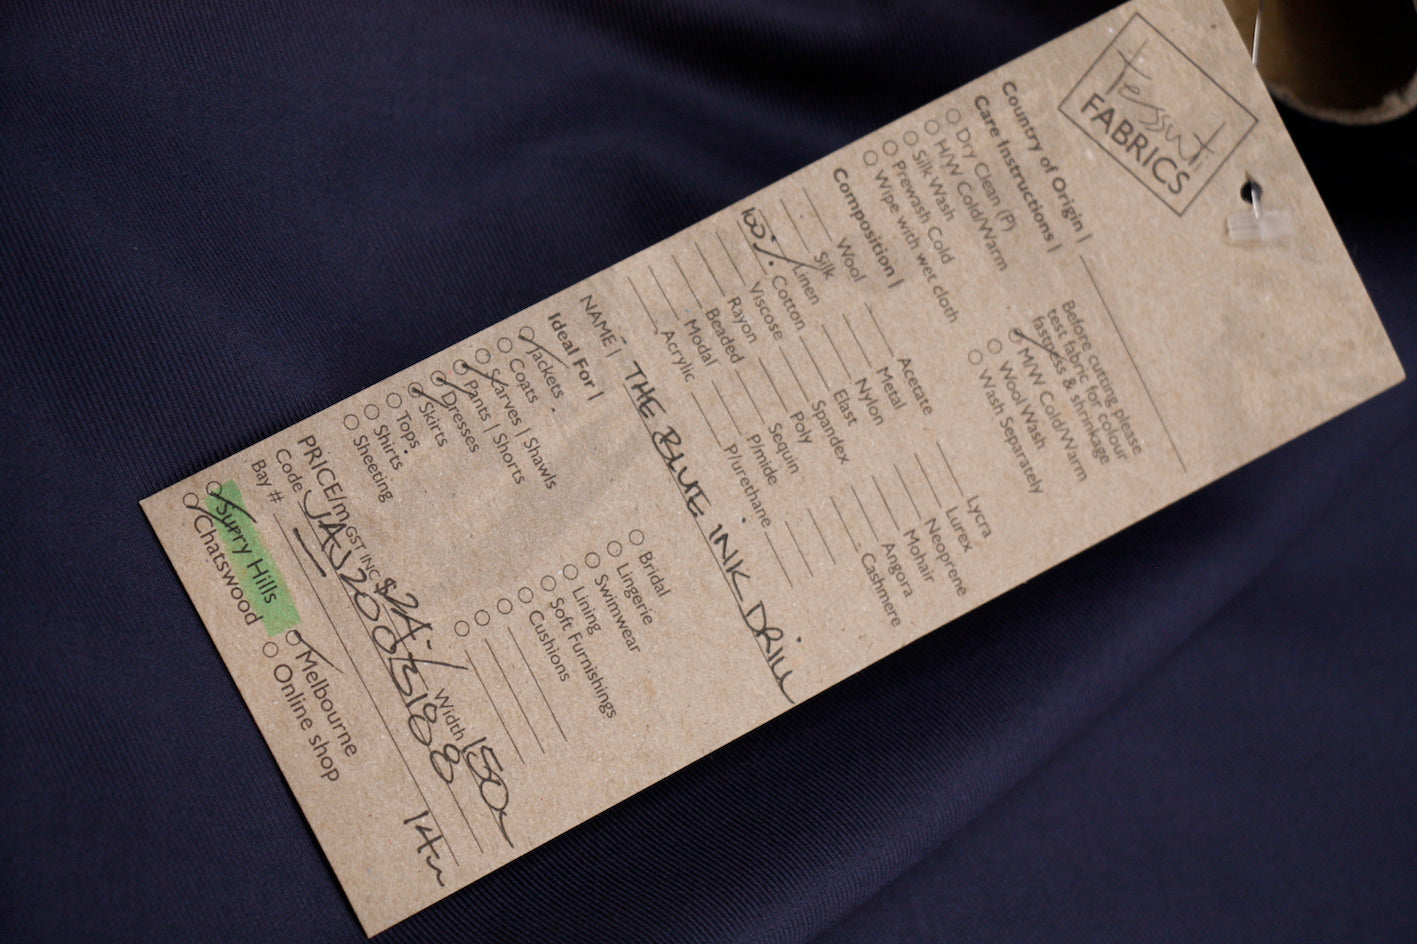 Tessuti
FABRICS
Country of Origin |
Care Instructions |
Before cutting please
test fabric for colour
fastness & shrinkage
Dry Clean (P)
H/W Cold/Warm
Silk Wash
Prewash Cold
Wipe with wet cloth
M/W Cold/Warm
Wool Wash
Wash Separately
Composition |
Wool
Silk
Linen
100% Cotton
Viscose
Rayon
Beaded
Modal
Acrylic
Acetate
Metal
Nylon
Elast
Spandex
Poly
Sequin
P/mide
P/urethane
Lycra
Lurex
Neoprene
Mohair
Angora
Cashmere
NAME | THE BLUE INK DRILL
Ideal For |
Jackets
Coats
Scarves | Shawls
Pants | Shorts
Dresses
Skirts
Tops
Shirts
Sheeting
Bridal
Lingerie
Swimwear
Lining
Soft Furnishings
Cushions
PRICE/m GST INC $24.- Width 150
Code
Bay # 14m
Surry Hills
Chatswood
Melbourne
Online shop